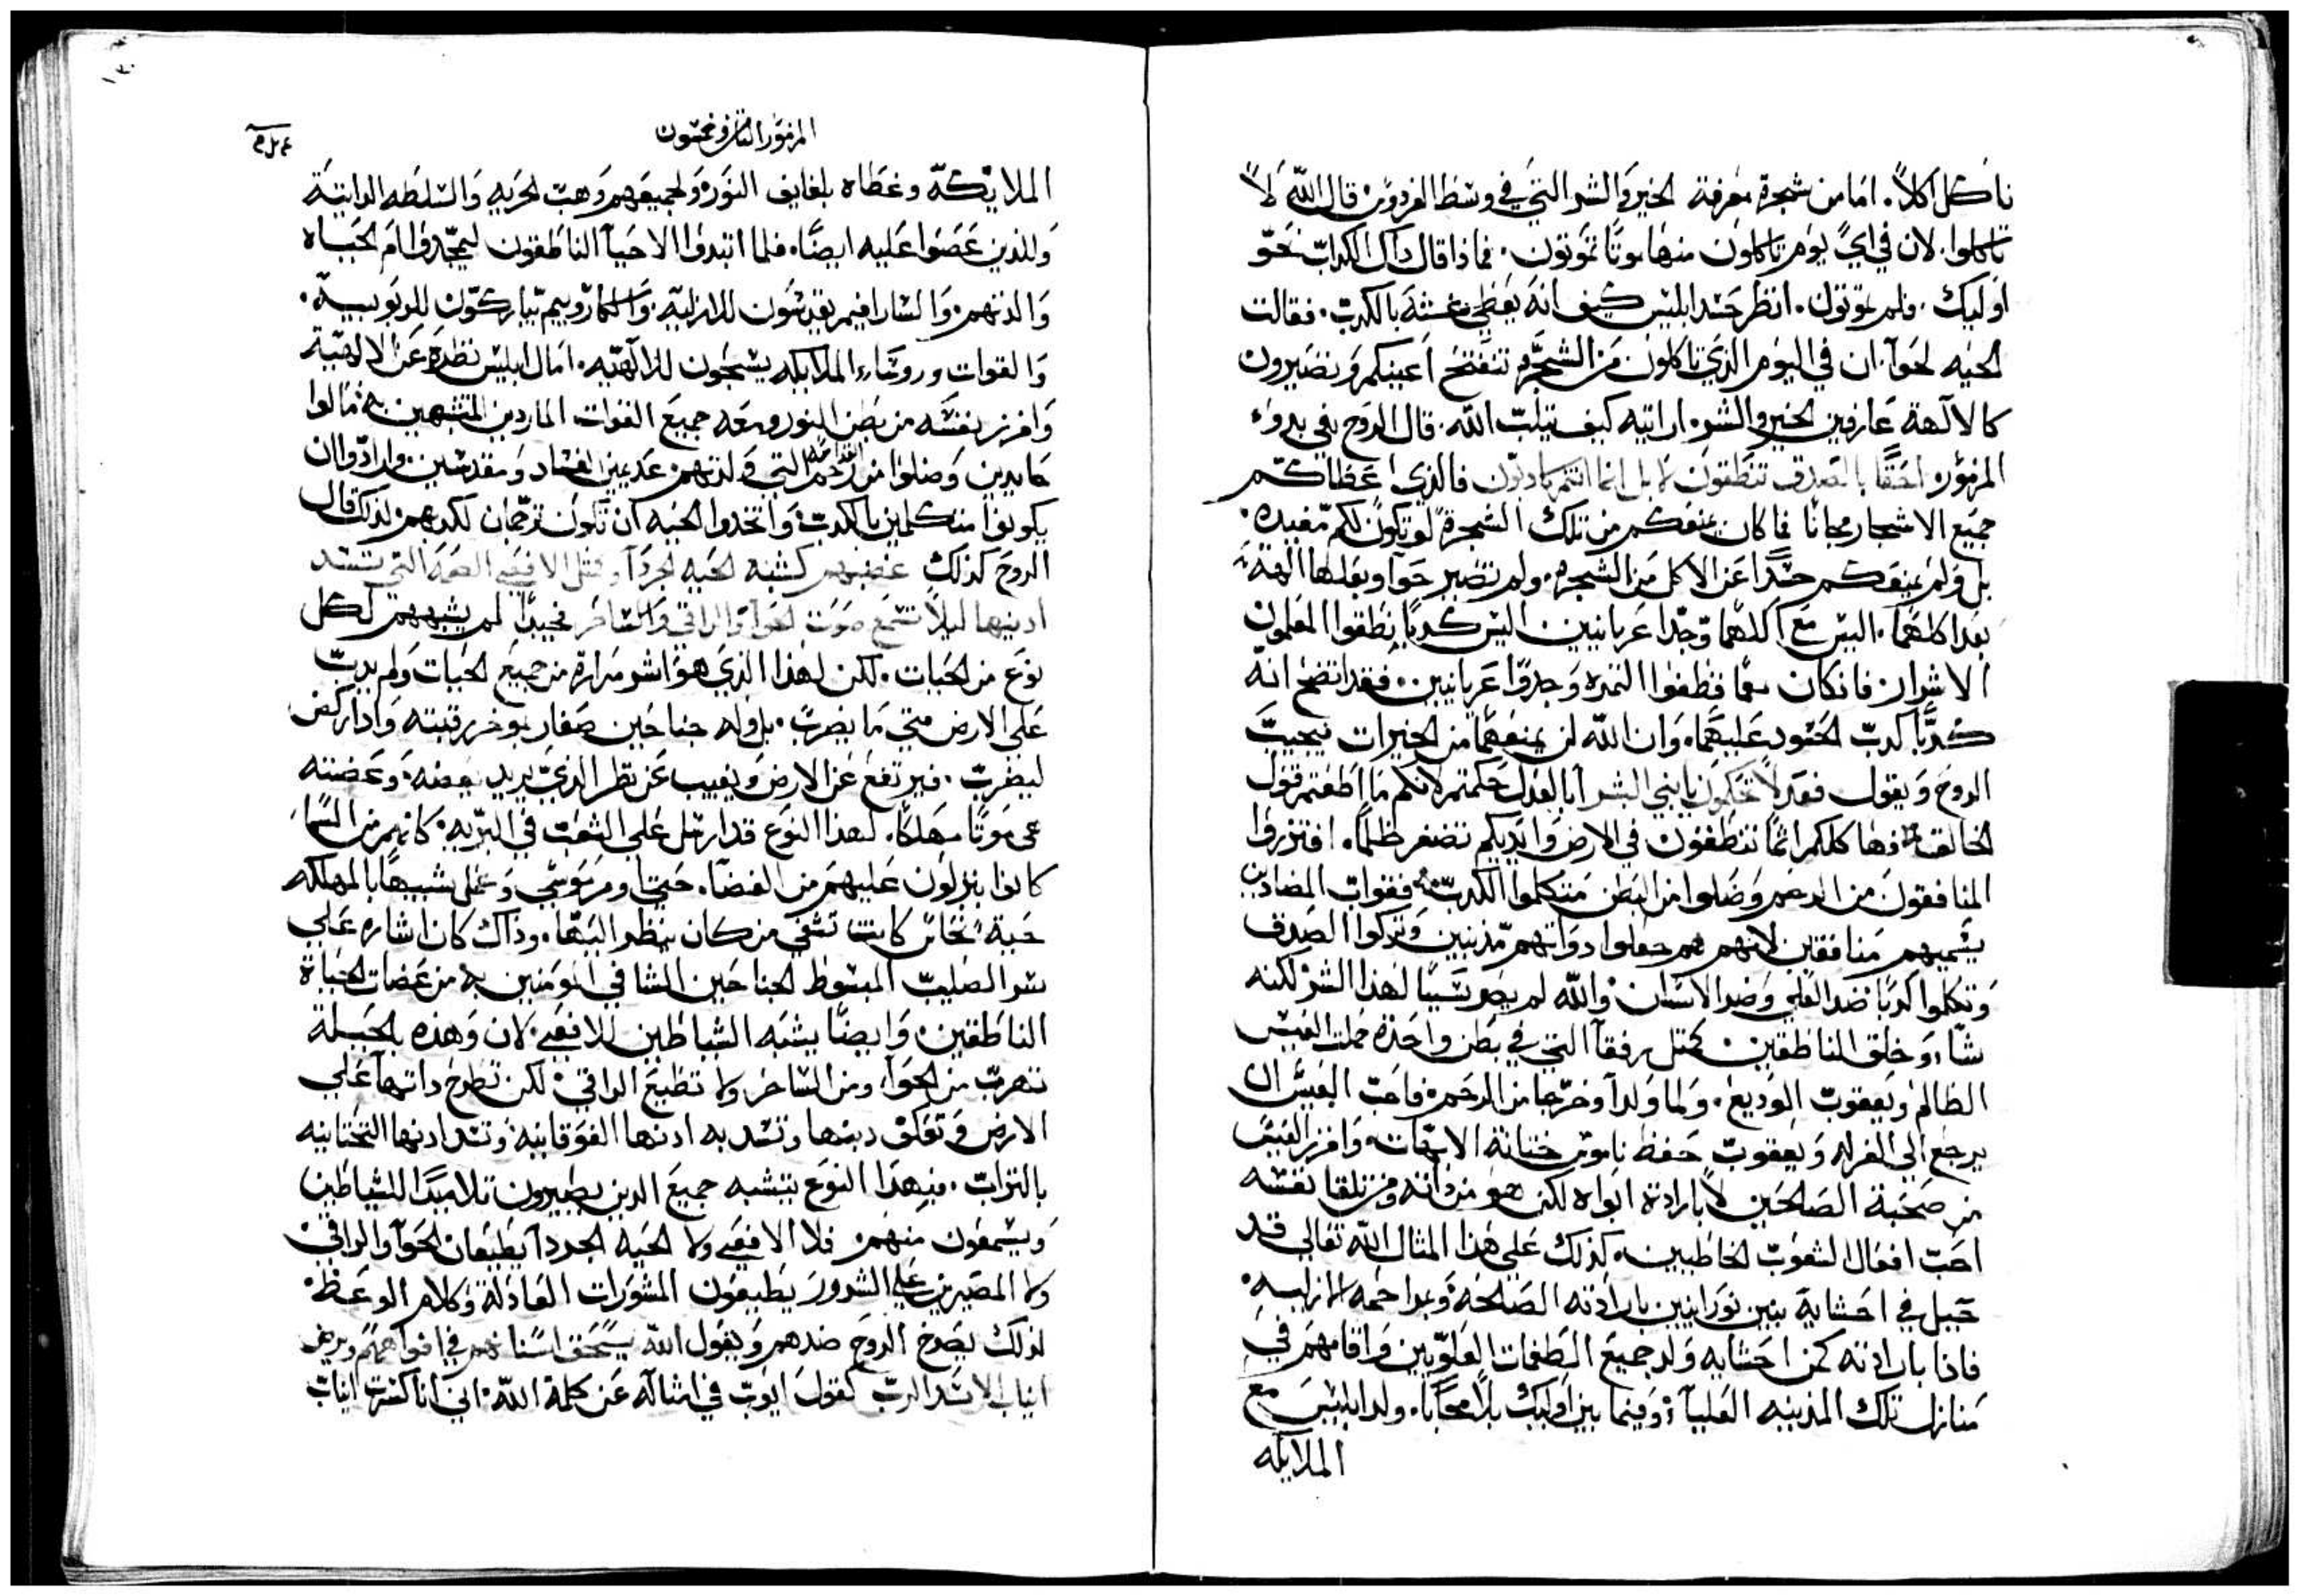 ناكل اكلاً. اما من شجرة معرفة الخير والشر التي في وسط الفردوس قال الله لا
تاكلوا. لان في اي يوم تاكلون منها موتًا تموتون. فماذا قال ذاك الكداب نحو
اوليك. ولم تموتون. انظر حسد ابليس كيف انه يغطي غشه بالكدب. فقالت
الحيه لحوآ. ان في اليوم الذي تاكلون من الشجره تنفتح اعينكم وتصيرون
كالالهة عارفين الخير والشر. ارايته كيف يتلب الله. قال الروح في بدوء
المزمور. احقًا بالصدق تنطقون لا بل انما انتم كادبون فالذي اعطاكم
جميع الاشجار مجانًا فما كان يمنعكم من تلك الشجرة لو تكون لكم مفيده.
بل ولم يمنعكم حسدًا عن الاكل من الشجره. ولم تصير حوآ وبعلها الهة
بعد اكلهما. اليس مع اكلهما وجدا عريانيين. اليس كدبًا نطقوا المعلمون
الاشرار. فان كان معما قطفوا التمره وجدوا عريانيين. فقد اتضح انه
كدبًا كدب الحسود عليهما. وان الله لن يمنعهما من الخيرات فيجيب
الروح ويقول فقد لا تحكمون يا بني البشر ابالعدل حكمتم لانكم ما اطعتم قول
الخالق فها كلكم اثمًا تنطقون في الارض وايديكم تضفر ظلمًا. افترزوا
المنافقون من الرحم وضلوا من البطن متكلموا الكدب فقوات المضادين
يسميهم منافقين لانهم هم جعلوا دواتهم مدنبين وتركوا الصدق
وتكلموا كدبًا ضد العلي وضد الانسان. والله لم يصر سببًا لهذا الشر لكنه
شآء وخلق الناطقين. كمثل رفقآ التي في بطن واحدة حملت العيس
الظالم ويعقوب الوديع. ولما ولدا وخرجا من الرحم. فاحب العيس ان
يرجع الي الغرله ويعقوب حفظ ناموس ختانة الابهات. وافرز العيس
من صحبة الصالحين لا بارادة ابواه لكن هو من ذاته ومن تلقا نفسه
احب افعال الشعوب الخاطيين. كذلك على هذا المثال الله تعالى قد
حبل في احشايه بنين نورانيين بارادته الصالحه وبمراحمه الازليه.
فاذا بارادته كمن احشايه ولد جميع الطغمات العلويين واقامهم في
منازل تلك المدينه العليآ. وفيما بين اوليك بلا محابا. ولد ابليس مع
الملايكه
المزمور الثامن وخمسون
الملايكة وغطاه بلفايف النور. ولجميعهم وهب الحريه والسلطه الداتية
وللذين عصوا عليه ايضًا. فلما ابتدوا الاحيآ الناطقون ليمجدوا ام الحياه
والدتهم. والسارافيم يقدسون للازلية. والكاروبيم يباركون للربوبية.
والقوات وروساء الملايكه يسبحون للالهيه. امال ابليس نظره عن الالهية
وافرز نفسه من بطن النور ومعه جميع القوات الماردين المتشبهين به. مالوا
حايدين وضلوا من الرحم التي ولدتهم عديمين الفساد ومقدسين. وارادوا ان
يكونوا متكلمين بالكدب. واتخدوا الحيه ان تكون ترجمان لكدبهم. لذلك قال
الروح كذلك غضبهم كشبه الحيه الجردآ ومثل الافعى الصمة التي تسد
ادنيها ليلا تسمع صوت الحوآ والراقي والساحر فجيدًا لم يشبههم لكل
نوع من الحيات. لكن لهذا الذي هو اشر مرارة من جميع الحيات ولم يدب
على الارض متي ما يضرب. بل وله جناحين صغار بموخر رقبته واذا ركض
ليضرب. فيرتفع عن الارض ويغيب عن نظر الذي يريد يعضه. وعضته
هي موتًا مهلكًا. لهذا النوع قد ارسل على الشعب في البريه. كانهم من السما
كانوا ينزلون عليهم من الفضآ. حتي اومر موسي وعمل شبيهًا بالمهلكه
حية نحاس كانت تشفي من كان ينظر اليها. وذاك كان اشاره على
سر الصليب المبسوط الجناحين الشافي المومنين به من عضات الحياة
الناطقين. وايضًا يشبه الشياطين للافعى. لان وهذه بالحيلة
تهرب من الحوآ، ومن الساحر ولا تطيع الراقي. لكن تطرح داتها على
الارض وتعكف دنبها وتسد به ادنها الفوقانيه. وتسد ادنها التحتانيه
بالتراب. فبهذا النوع يتشبه جميع الدين يصيرون تلاميدًا للشياطين
ويسمعون منهم. فلا الافعي ولا الحيه الجردآ يطيعان الحوآ والراقي.
ولا المصرين على الشرور يطيعون المشورات العادلة وكلام الوعظ.
لذلك يصرخ الروح ضدهم ويقول الله يسحق اسنانهم في افواههم ويرض
انياب الاسد الرب كقول ايوب في امثاله عن كلمة الله. اني انا كسرت انياب